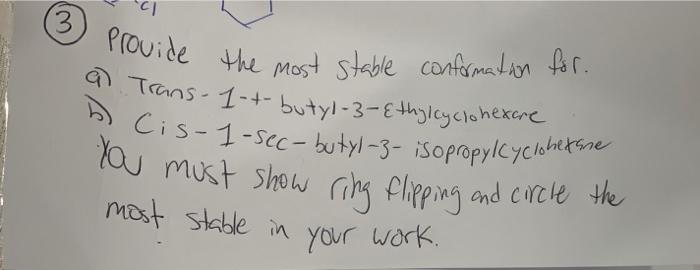 cl
3 Provide the most stable conformation for.
a) Trans-1-t-butyl-3-Ethylcyclohexane
b) Cis-1-sec-butyl-3-isopropylcyclohexane
You must show ring flipping and circle the
most stable in your work.